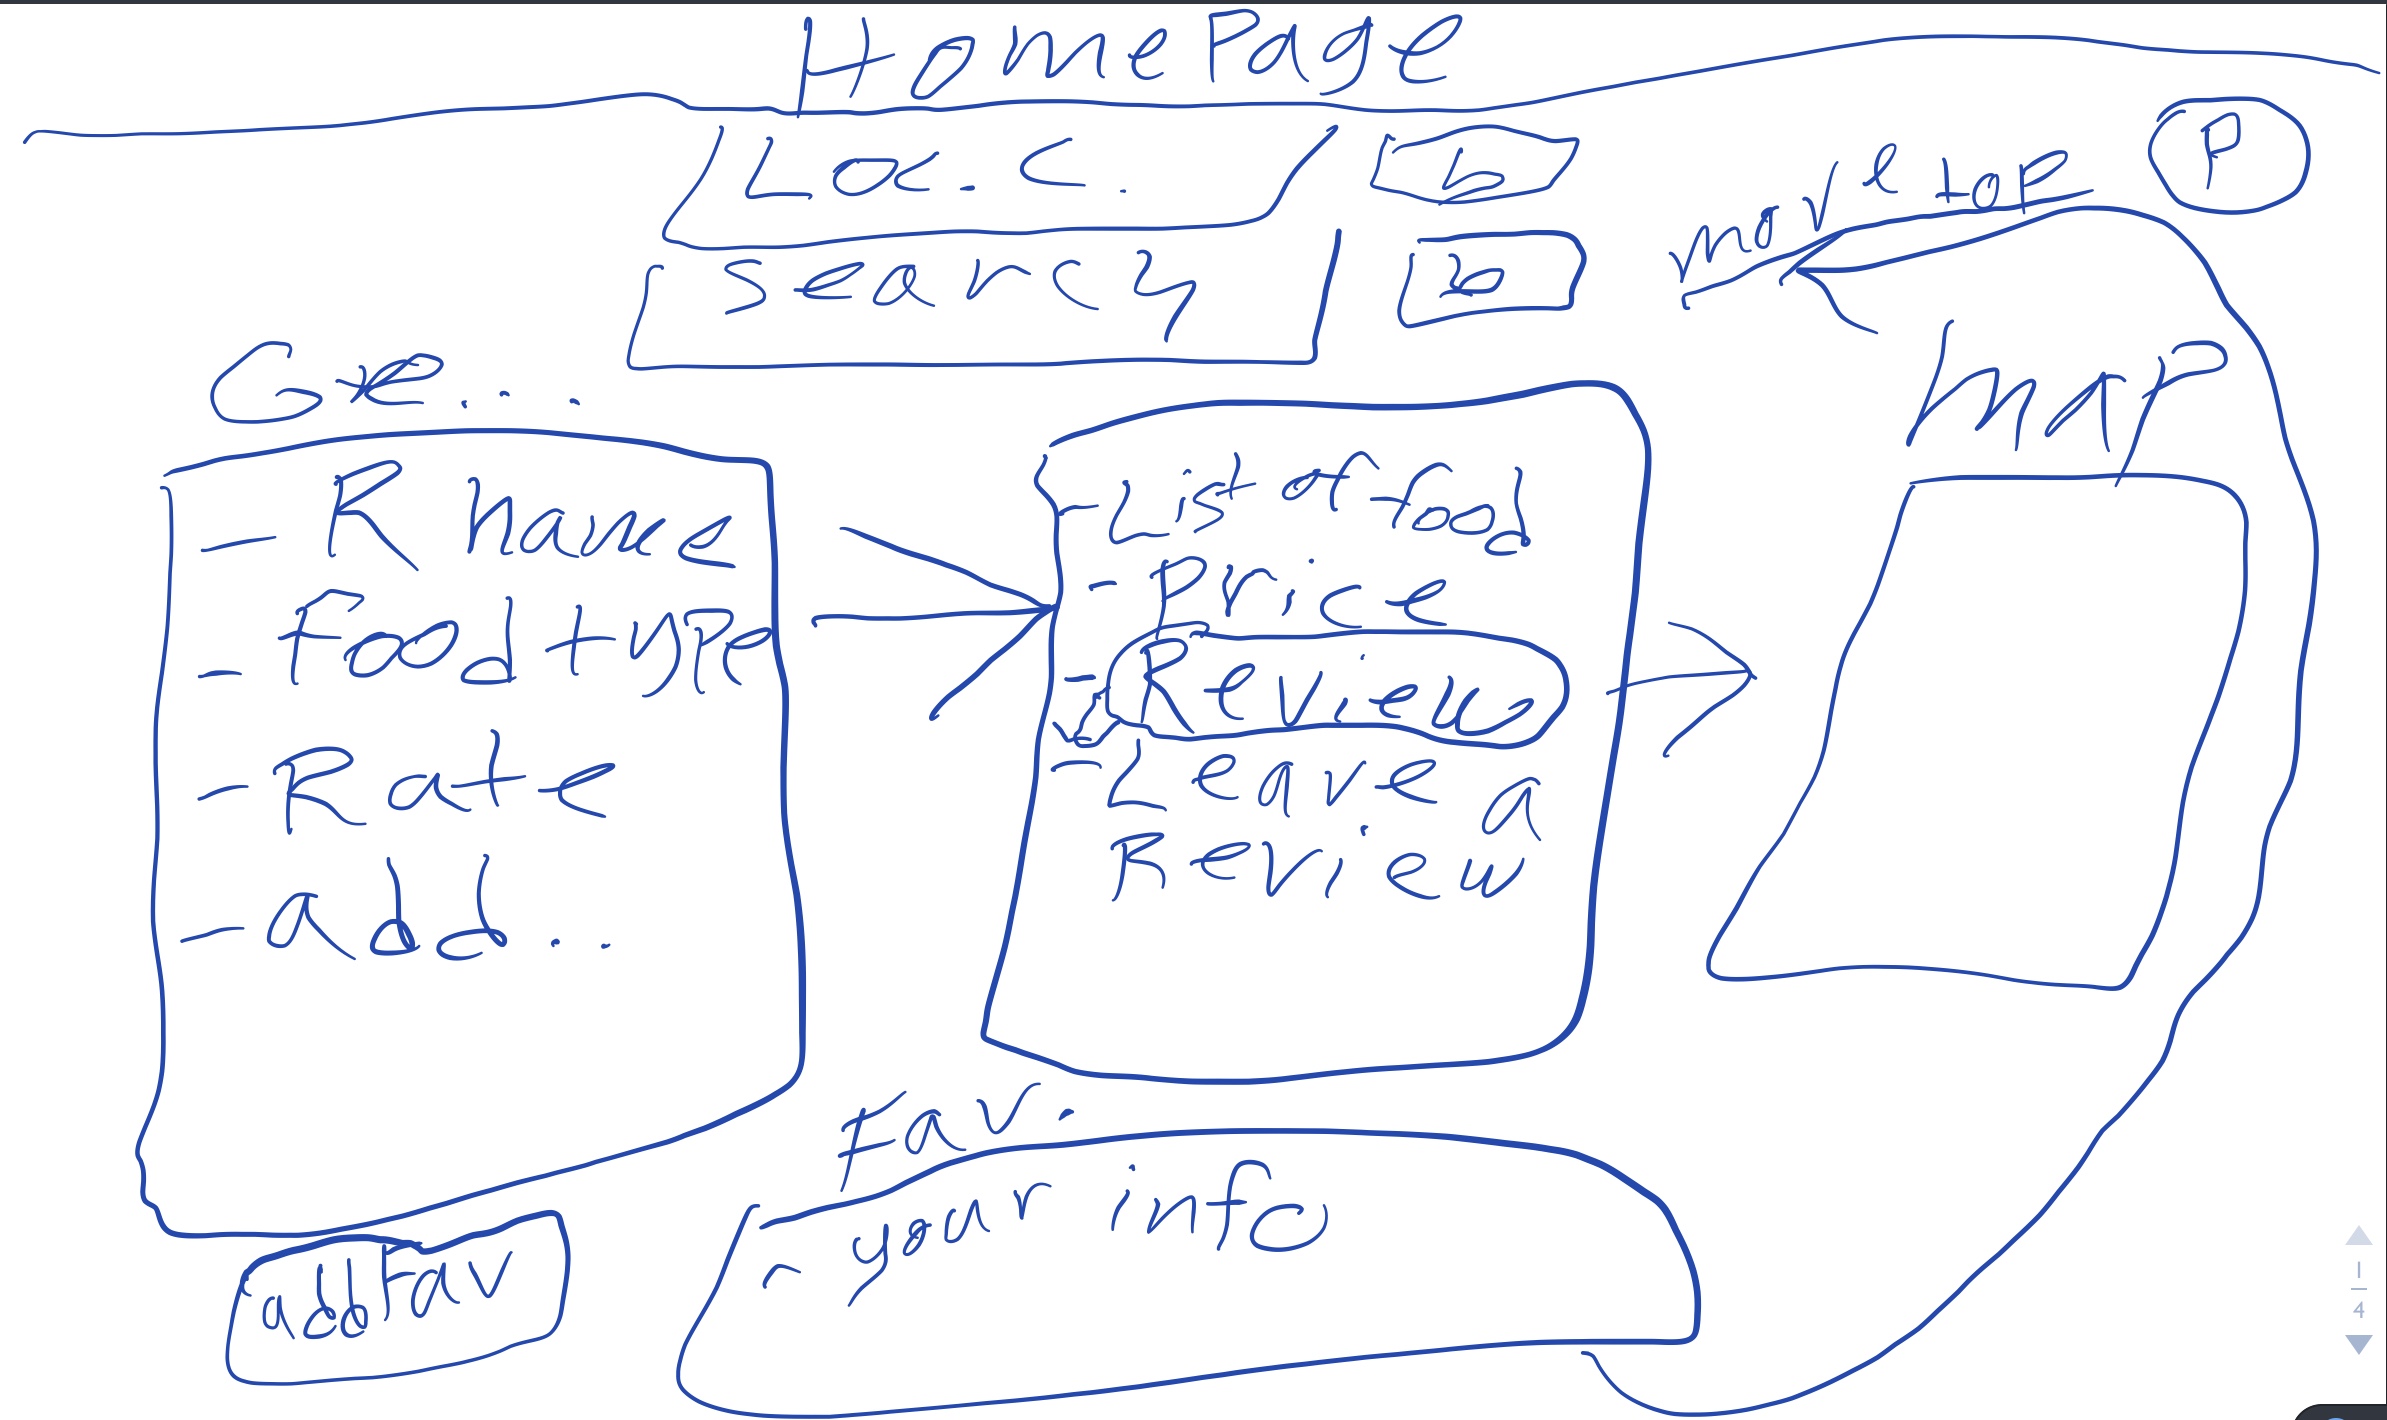 HomePage
Loc. C.
b
P
move top
search
b
map
- R name
- Food type
- Rate
- add..
- List of food
- Price
- Reviews
- Leave a
Review
Fav.
- your info
add Fav
1
4